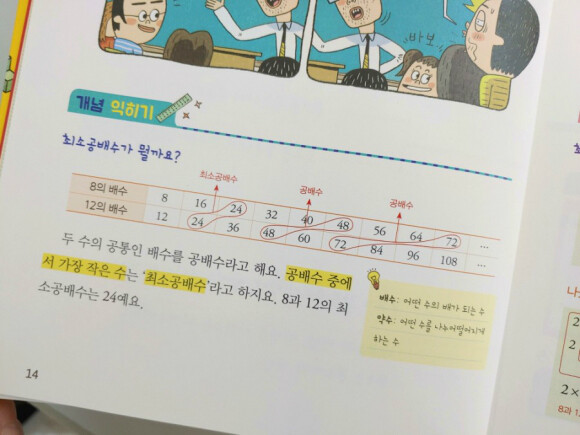 바보
개념 익히기
최소공배수가 뭘까요?
최소공배수 공배수 공배수
8의 배수 8 16 24 32 40 48 56 64 72 ...
12의 배수 12 24 36 48 60 72 84 96 108 ...
두 수의 공통인 배수를 공배수라고 해요. 공배수 중에
서 가장 작은 수는 '최소공배수'라고 하지요. 8과 12의 최
소공배수는 24예요.
배수 : 어떤 수의 배가 되는 수
약수 : 어떤 수를 나누어떨어지게
하는 수
14
2
2
2×
8과 1